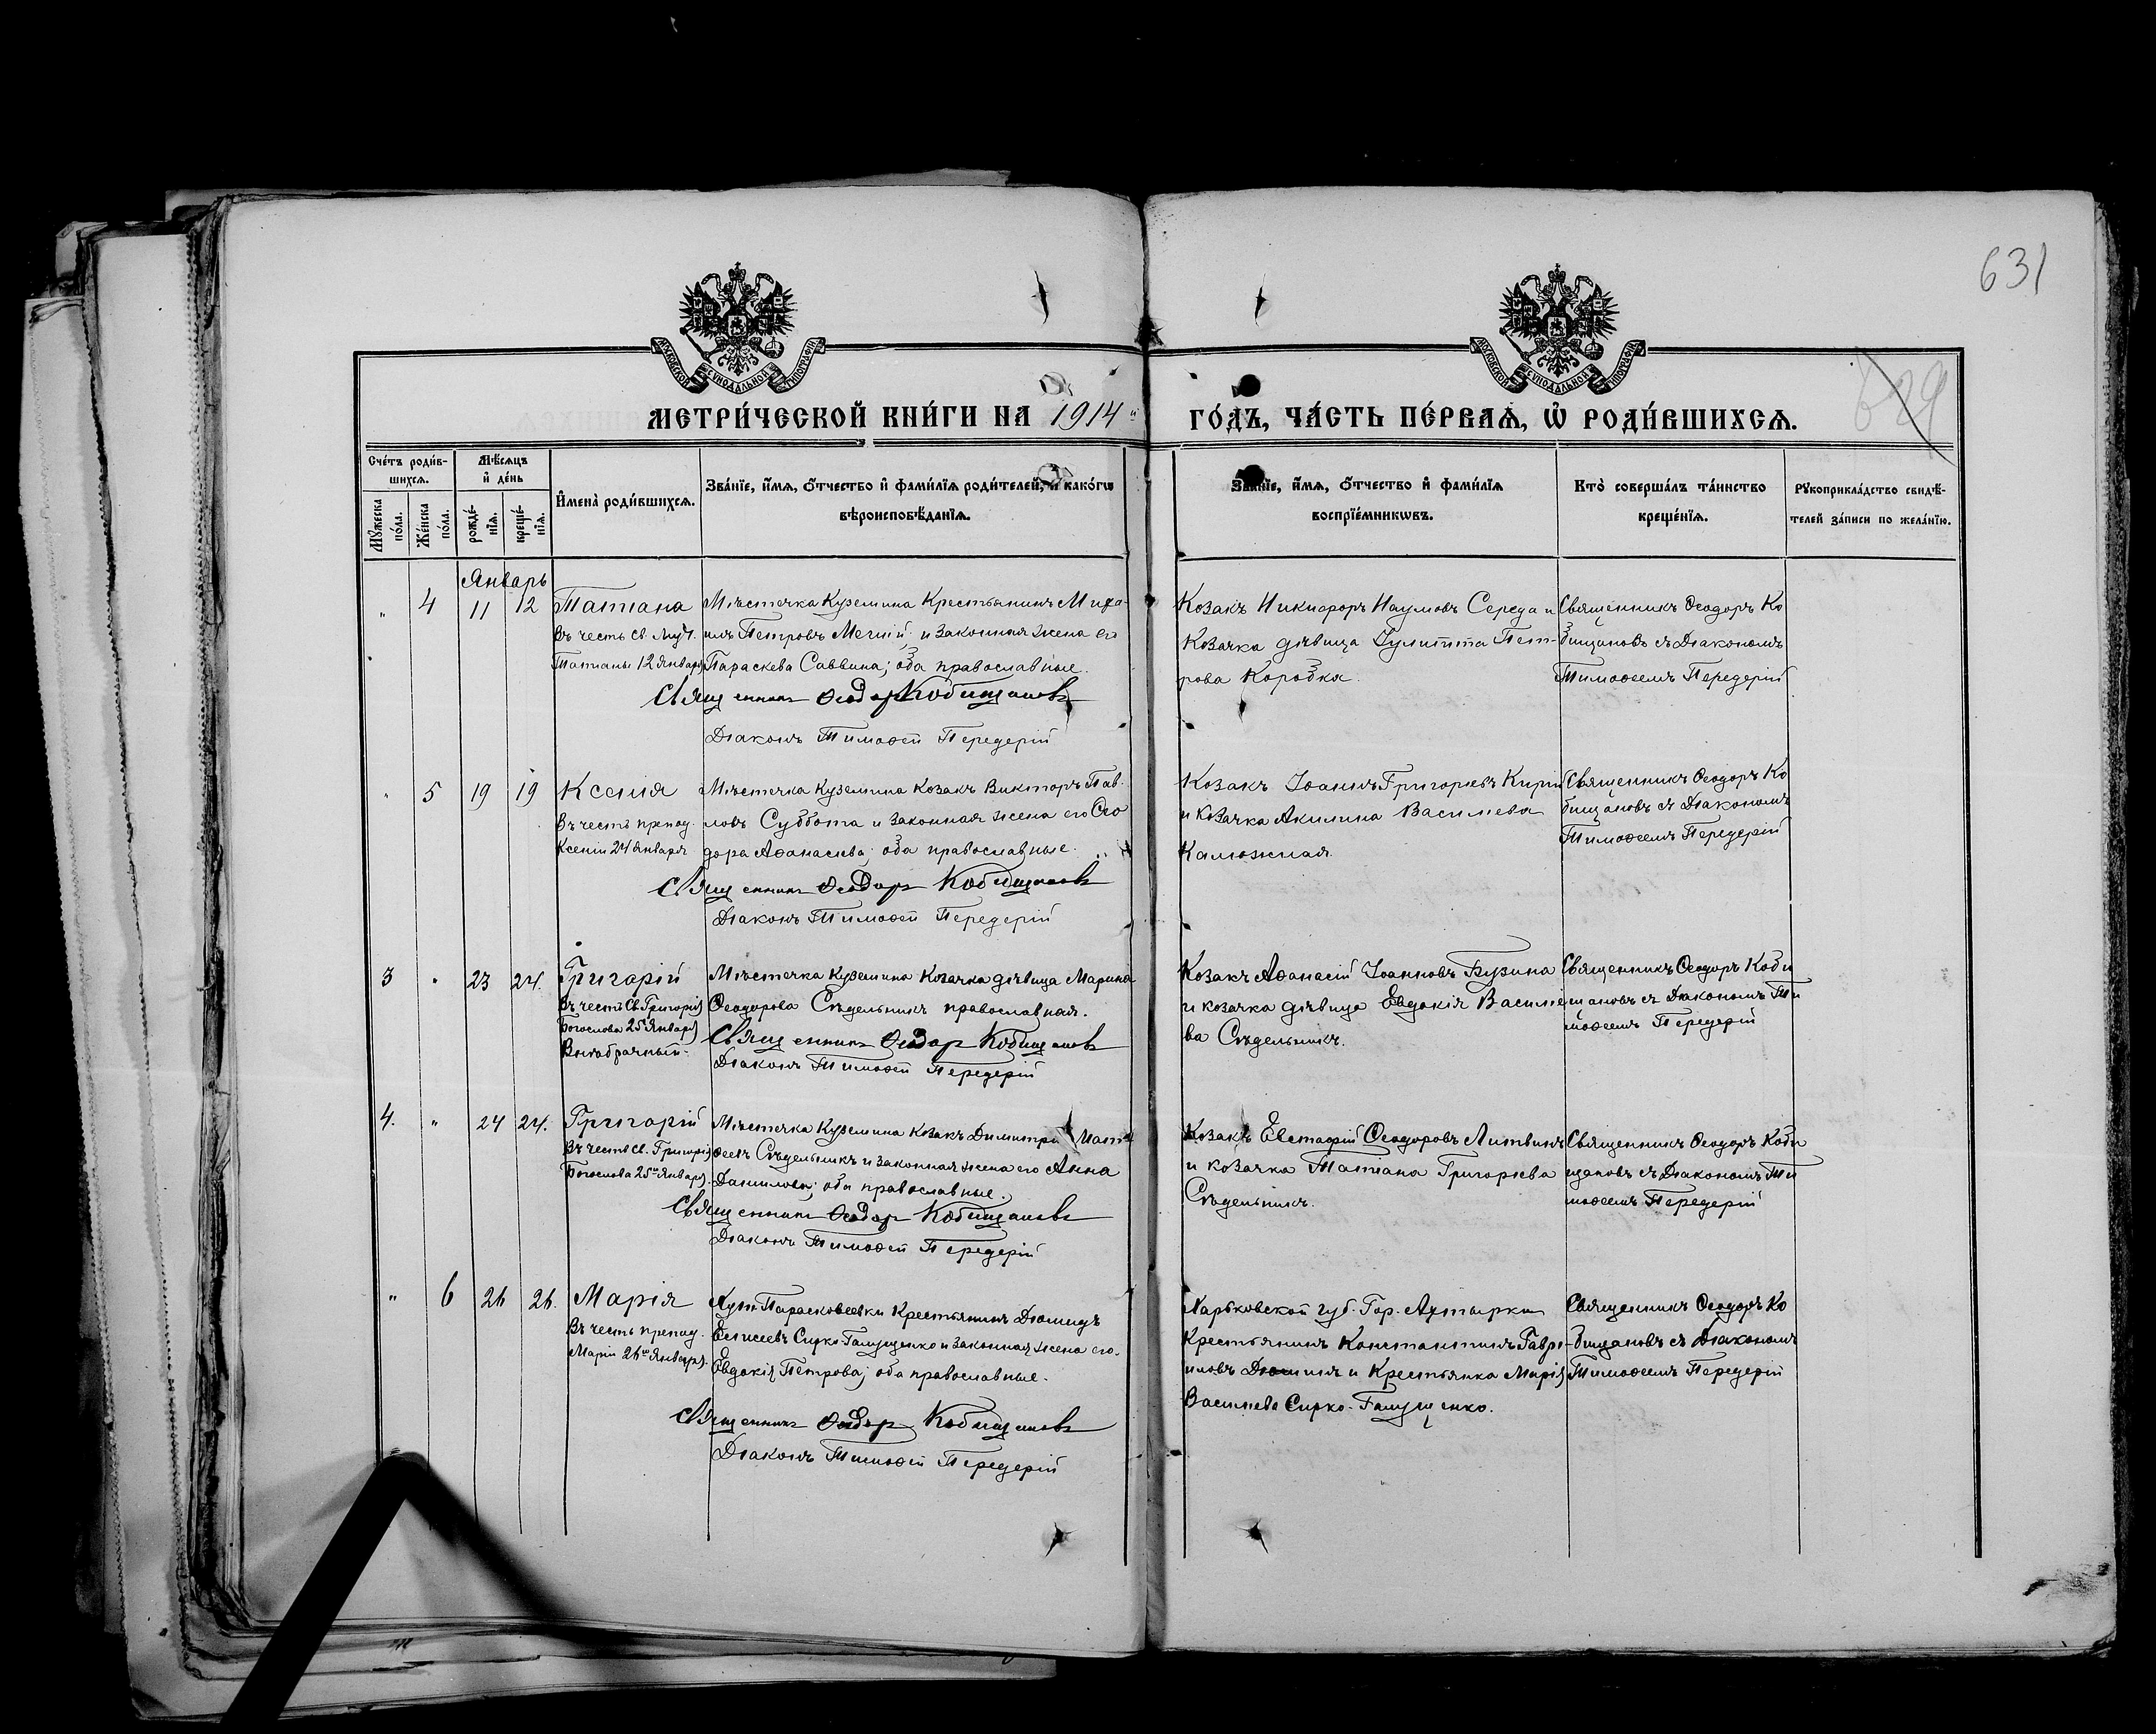 631
629
МОСКОВСКОЙ СѴНОДАЛЬНОЙ ТИПОГРАФІИ
МОСКОВСКОЙ СѴНОДАЛЬНОЙ ТИПОГРАФІИ
МЕТРИ́ЧЕСКОЙ КНИ́ГИ НА 1914 й ГО́ДЪ, ЧА́СТЬ ПЕ́РВАѦ, Ѽ РОДИ́ВШИХСѦ.
Сче́тъ роди́в-
шихсѧ.
Мꙋ́жеска
по́ла.
Же́нска
по́ла.
Мѣ́сѧцъ
и҆ де́нь
рожде́-
нїѧ.
креще́-
нїѧ.
И҆мена̀ роди́вшихсѧ.
Зва́нїе, и҆́мѧ, ѻ҆́тчество и҆ фами́лїѧ роди́телей, и҆ како́гѡ
вѣроисповѣ́данїѧ.
Зва́нїе, и҆́мѧ, ѻ҆́тчество и҆ фами́лїѧ
воспрїе́мникѡвъ.
Кто̀ соверша́лъ та́инство
креще́нїѧ.
Рꙋкоприкла́дство свидѣ́-
телей за́писи по жела́нїю.
Январь
" 4 11 12
Татіана
Въ честь св. муч.
Татіаны 12 Января
Мѣстечка Куземина Крестьянинъ Миха-
илъ Петровъ Мечий и законная жена его
Параскева Саввина; оба православные.
Священникъ Ѳеодоръ Кобищановъ
Діаконъ Тимоѳей Передерій
Козакъ Никифоръ Наумовъ Середа и
Козачка дѣвица Іулитта Пет-
рова Коробка.
Священникъ Ѳеодоръ Ко
бищановъ съ Діакономъ
Тимоѳеемъ Передерій
" 5 19 19
Ксенія
Въ честь препод.
Ксеніи 24 Января
Мѣстечка Куземина Козакъ Викторъ Пав-
ловъ Суббота и законная жена его Ѳео
дора Аѳанасіева; оба православные.
Священникъ Ѳеодоръ Кобищановъ
Діаконъ Тимоѳей Передерій
Козакъ Іоаннъ Григорьевъ Кирій
и Козачка Акилина Васильева
Калюжная.
Священникъ Ѳеодоръ Ко
бищановъ съ Діакономъ
Тимоѳеемъ Передерій
3 " 23 24.
Григорій
Въ честь Св. Григорія
Богослова 25 Января
Внѣбрачный.
Мѣстечка Куземина Козачка дѣвица Марина
Ѳеодорова Съдельникъ православная.
Священникъ Ѳеодоръ Кобищановъ
Діаконъ Тимоѳей Передерій
Козакъ Аѳанасій Іоанновъ Бузина
и козачка дѣвица Евдокія Василье
ва Съдельникъ.
Священникъ Ѳеодоръ Коби
щановъ съ Діакономъ Ти
моѳеемъ Передерій
4. " 24 24.
Григорій
Въ честь св. Григорія
Богослова 25го Января.
Мѣстечка Куземина Козакъ Димитрій Мат-
ѳеевъ Съдельникъ и законная жена его Анна
Данилова; оба православные.
Священникъ Ѳеодоръ Кобищановъ
Діаконъ Тимоѳей Передерій
Козакъ Евстафій Ѳеодоровъ Литвинъ
и козачка Татіана Григорьева
Съдельникъ.
Священникъ Ѳеодоръ Коби
щановъ съ Діакономъ Ти
моѳеемъ Передерій
" 6 26 26.
Марія
Въ честь препод.
Маріи 26го Января.
Хут. Парасковеевки Крестьянинъ Діомидъ
Елисеевъ Сирко-Галущенко и законная жена его
Евдокія Петрова; оба православные.
Священникъ Ѳеодоръ Кобищановъ
Діаконъ Тимоѳей Передерій
Харьковской губ. Гор. Ахтырки
Крестьянинъ Константинъ Гаврі-
иловъ и Крестьянка Марія
Васильева Сирко-Галущенко.
Священникъ Ѳеодоръ Ко
бищановъ съ Діакономъ
Тимоѳеемъ Передерій